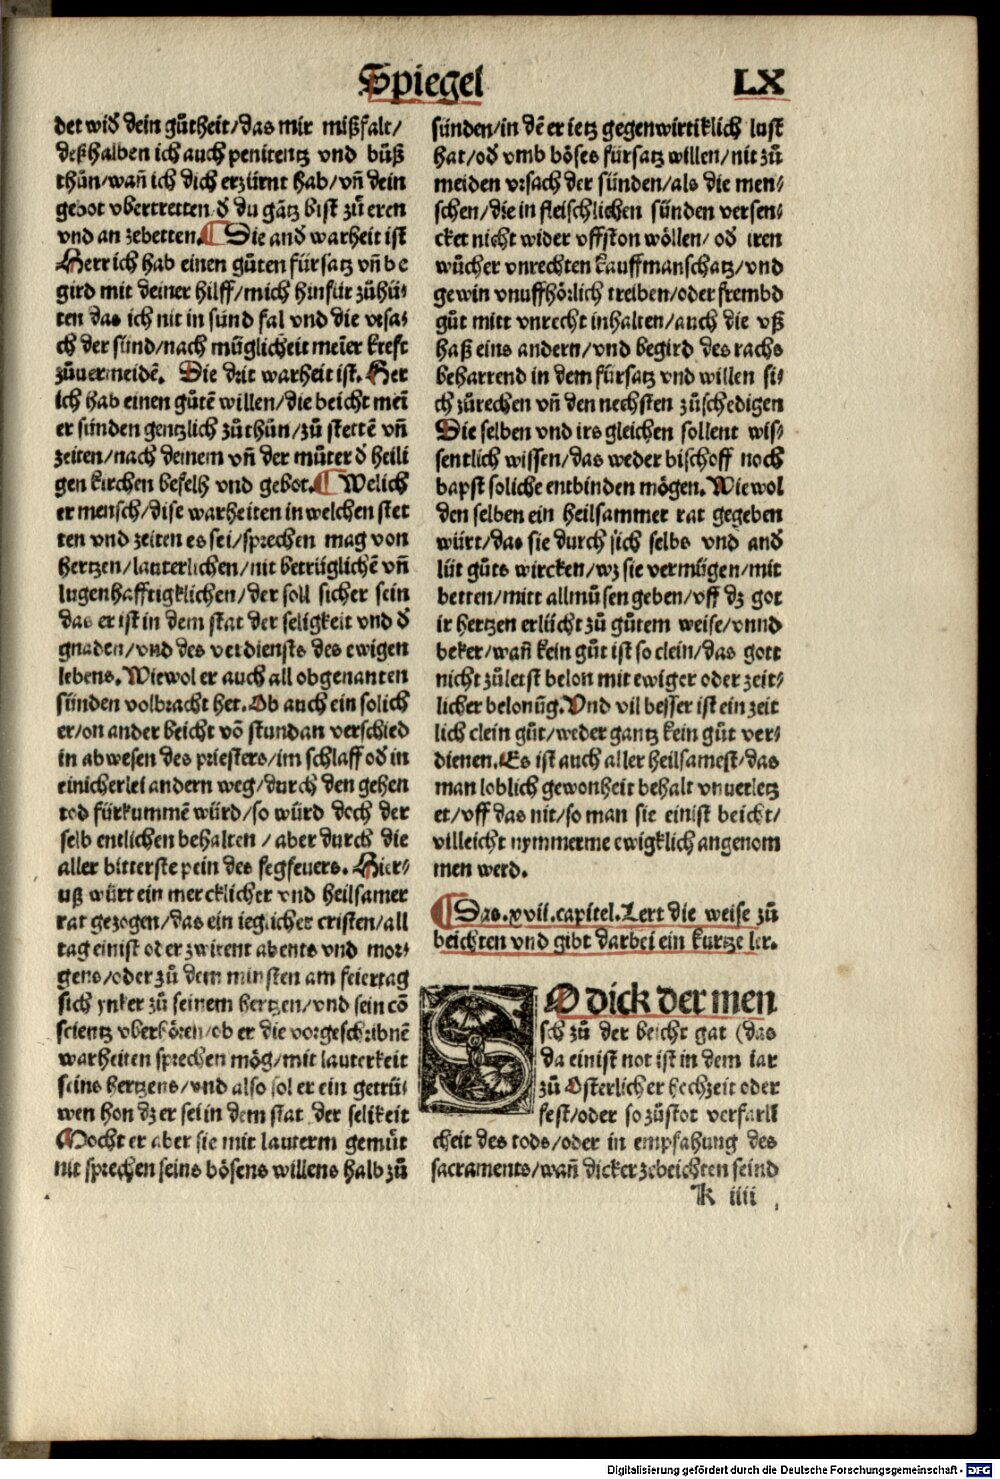 Spiegel
LX
det wid᷑ dein gůtheit/das mir mißfalt/
deßhalben ich auch penitentz vnd bůß
thůn/wañ ich dich erzürnt hab/vñ dein
gebot vbertretten d᷑ du gātz bist zů eren
vnd an zebetten. Die and᷑ warheit ist
Herr ich hab einen gůten fürsatz vñ be
gird mit deiner hilff/mich hinfür zůhü⸗
ten das ich nit in sünd fal vnd die vrsa⸗
ch der sünd/nach müglicheit meīer kreft
zůuermeidē. Die drit warheit ist. Her
ich hab einen gůtē willen/die beicht meī
er sünden gentzlich zů thůn/zů stettē vñ
zeiten/nach deinem vñ der můter d᷑ heili
gen kirchen befelh vnd gebot. Welich
er mensch/dise warheiten in welchen stet
ten vnd zeiten es sei/sprechen mag von
hertzen/lauterlichen/nit betrüglichē vñ
lugenhafftigklichen/der soll sicher sein
das er ist in dem stat der seligkeit vnd d᷑
gnaden/vnd des verdiensts des ewigen
lebens. Wiewol er auch all obgenanten
sünden volbracht het. Ob auch ein solich
er/on ander beicht vō stundan verschied
in abwesen des priesters/im schlaff od᷑ in
einicherlei andern weg/durch den gehen
tod fürkummē würd/so würd doch der
selb entlichen behalten/aber durch die
aller bitterste pein des fegfeuers. Hier⸗
uß würt ein mercklicher vnd heilsamer
rat gezogen/das ein ieglicher cristen/all
tag einist oder zwirent abents vnd mor⸗
gens/oder zů dem minsten am feiertag
sich ynker zů seinem hertzen/vnd sein cō
scientz vberhören/ob er die vorgeschribnē
warheiten sprechen mög/mit lauterkeit
seins hertzens/vnd also sol er ein getrü⸗
wen hon dz er sei in dem stat der selikeit
Mocht er aber sie mit lauterm gemüt
nit sprechen seins bösens willens halb zů
sünden/in dē er ietz gegenwirtiklich lust
hat/od᷑ vmb böses fürsatz willen/nit zů
meiden vrsach der sünden/als die men⸗
schen/die in fleischlichen sünden versen⸗
cket nicht wider vffston wöllen/od᷑ iren
wůcher vnrechten kauffmanschatz/vnd
gewin vnuffhörlich treiben/oder frembd
gůt mitt vnrecht inhalten/auch die vß
haß eins andern/vnd begird des rachs
beharrend in dem fürsatz vnd willen si⸗
ch zůrechen vñ den nechsten zůschedigen
Die selben vnd irs gleichen sollent wis⸗
sentlich wissen/das weder bischoff noch
bapst soliche entbinden mögen. Wiewol
den selben ein heilsammer rat gegeben
würt/das sie durch sich selbs vnd and᷑
lüt gůts wircken/wz sie vermügen/mit
betten/mitt allmůsen geben/vff dz got
ir hertzen erlücht zů gůtem weise/vnnd
beker/wañ kein gůt ist so clein/das gott
nicht zůletst belon mit ewiger oder zeit⸗
licher belonūg. Vnd vil besser ist ein zeit
lich clein gůt/weder gantz kein gůt ver⸗
dienen. Es ist auch aller heilsamest/das
man loblich gewonheit behalt vnuerletz
et/vff das nit/so man sie einist beicht/
villeicht nymmerme ewigklich angenom
men werd.
Das .xvii. capitel. Lert die weise zů
beichten vnd gibt darbei ein kurtze ler.
SO dick der men
sch zů der beicht gat (das
da einist not ist in dem iar
zů Osterlicher hochzeit oder
fest/oder so zůstot verfarli
cheit des tods/oder in empfahung des
sacraments/wañ dicker zebeichten seind
k iiii
Digitalisierung gefördert durch die Deutsche Forschungsgemeinschaft - DFG